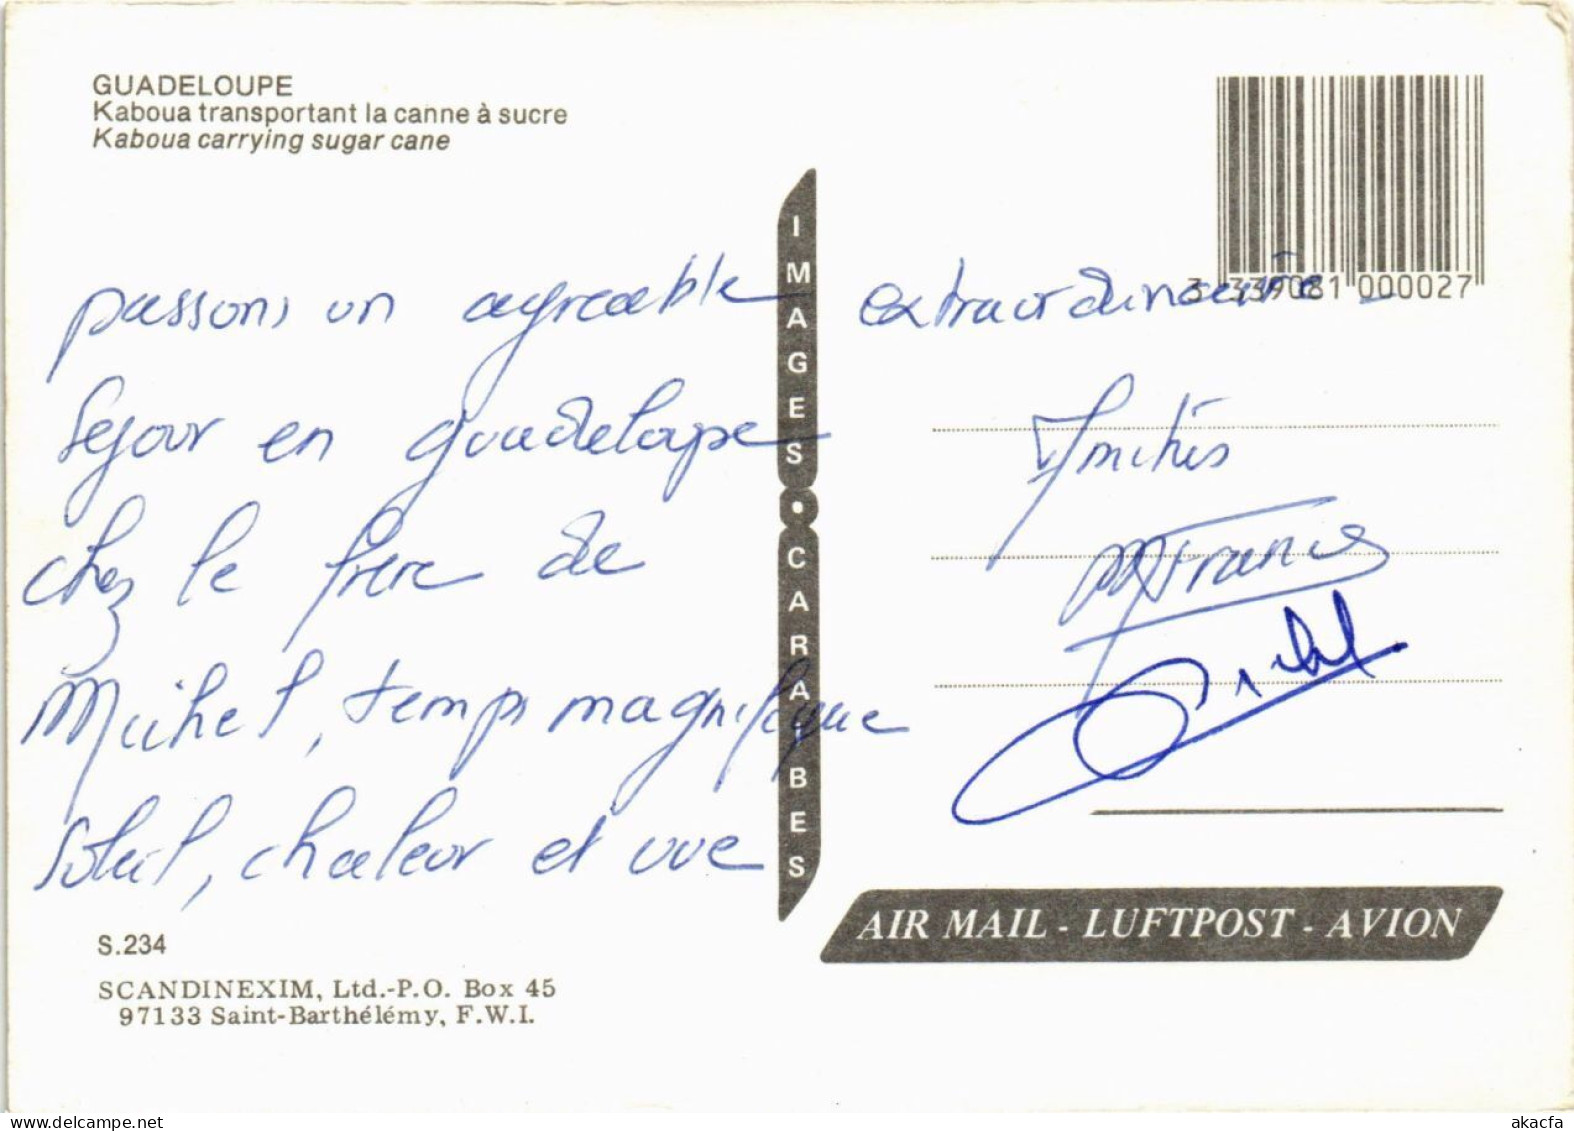 GUADELOUPE
Kaboua transportant la canne à sucre
Kaboua carrying sugar cane
3 339081 000027
IMAGES • CARAIBES
passons un agreable
séjour en guadeloupe
chez le frère de
Michel, temps magnifique
soleil, chaleur et vue
extraordinaire
Amitiés
M France
Michel
AIR MAIL - LUFTPOST - AVION
S.234
SCANDINEXIM, Ltd.-P.O. Box 45
97133 Saint-Barthélémy, F.W.I.
hu.delcampe.net
akacfa